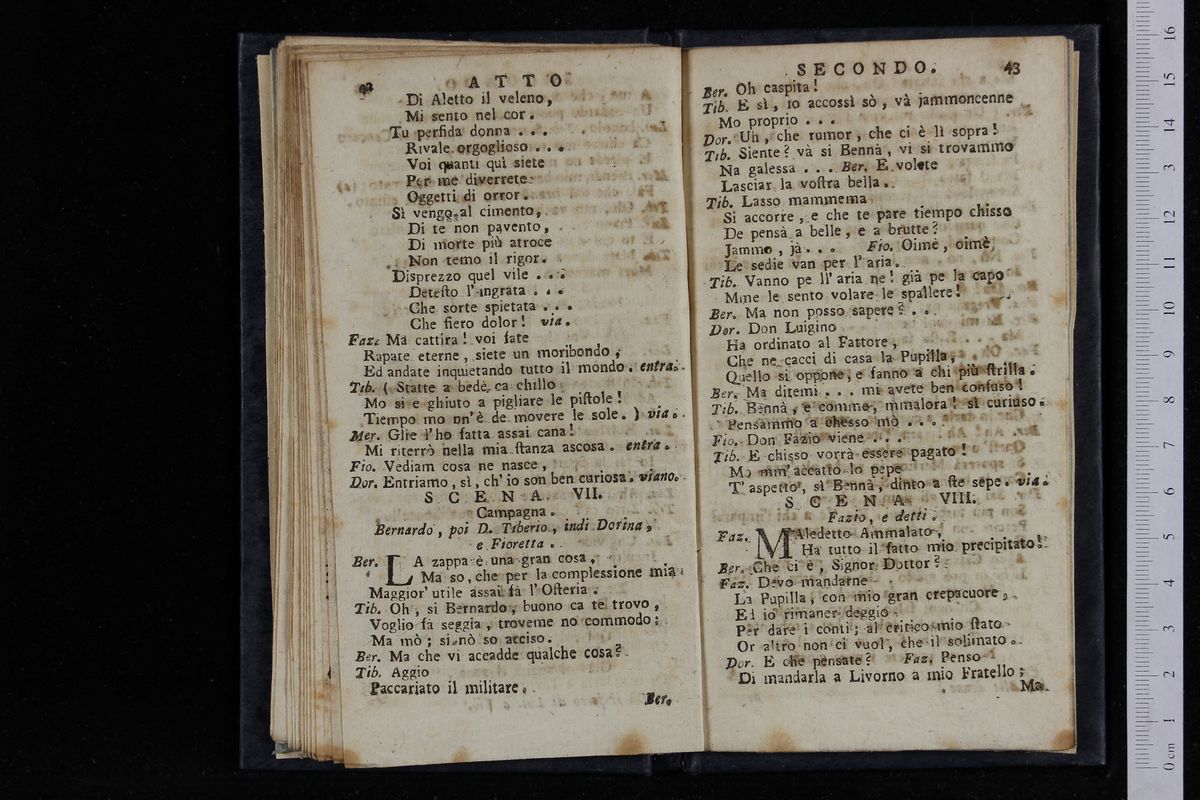 42 ATTO
Di Aletto il veleno,
Mi sento nel cor.
Tu perfida donna . . .
Rivale orgoglioso . . .
Voi quanti quì siete
Per me diverrete
Oggetti di orror.
Sì vengo al cimento,
Di te non pavento,
Di morte più atroce
Non temo il rigor.
Disprezzo quel vile . . .
Deteſto l'ingrata . . .
Che sorte spietata . . .
Che fiero dolor! via.
Faz. Ma cattira! voi ſate
Rapate eterne, siete un moribondo,
Ed andate inquietando tutto il mondo. entra.
Tib. ( Statte a bedè, ca chillo
Mo si è ghiuto a pigliare le piſtole!
Tiempo mo nn'è de movere le sole. ) via.
Mer. Glie l'ho fatta assai cana!
Mi riterrò nella mia ſtanza ascosa. entra.
Fio. Vediam cosa ne nasce,
Dor. Entriamo, sì, ch'io son ben curiosa. viano.
SCENA VII.
Campagna.
Bernardo, poi D. Tiberio, indi Dorina,
e Fioretta.
Ber. LA zappa è una gran cosa,
Ma so, che per la complessione mia
Maggior' utile assai fà l'Oſteria.
Tib. Oh, si Bernardo, buono ca te trovo,
Voglio fà seggia, troveme no commodo:
Ma mò; si nò so acciso.
Ber. Ma che vi accadde qualche cosa?
Tib. Aggio
Paccariato il militare.
Ber.
SECONDO. 43
Ber. Oh caspita!
Tib. E sì, io accossì sò, và jammoncenne
Mo proprio . . .
Dor. Uh, che rumor, che ci è lì sopra!
Tib. Siente? và si Bennà, vi si trovammo
Na galessa . . . Ber. E volete
Lasciar la voſtra bella.
Tib. Lasso mammema
Si accorre, e che te pare tiempo chisso
De pensà a belle, e a brutte?
Jammo, jà . . . Fio. Oimè, oimè,
Le sedie van per l'aria.
Tib. Vanno pe ll'aria ne! già pe la capo
Mme le sento volare le spallere!
Ber. Ma non posso sapere? . .
Dor. Don Luigino
Ha ordinato al Fattore,
Che ne cacci di casa la Pupilla,
Quello si oppone, e fanno a chi più ſtrilla.
Ber. Ma ditemi . . . mi avete ben confuso!
Tib. Bennà, e comme, mmalora! sì curiuso.
Pensammo a chesso mò . . . .
Fio. Don Fazio viene . . .
Tib. E chisso vorrà essere pagato!
Mo mm'accatto lo pepe
T'aspetto, sì Bennà, dinto a ſte sepe. via.
SCENA VIII.
Fazio, e detti.
Faz. MAledetto Ammalato,
Ha tutto il fatto mio precipitato!
Ber. Che ci è, Signor Dottor?
Faz. Devo mandarne
La Pupilla, con mio gran crepacuore,
Ed io rimaner deggio
Per dare i conti; al critico mio ſtato
Or altro non ci vuol, che il solimato.
Dor. E che pensate? Faz. Penso
Di mandarla a Livorno a mio Fratello;
Ma